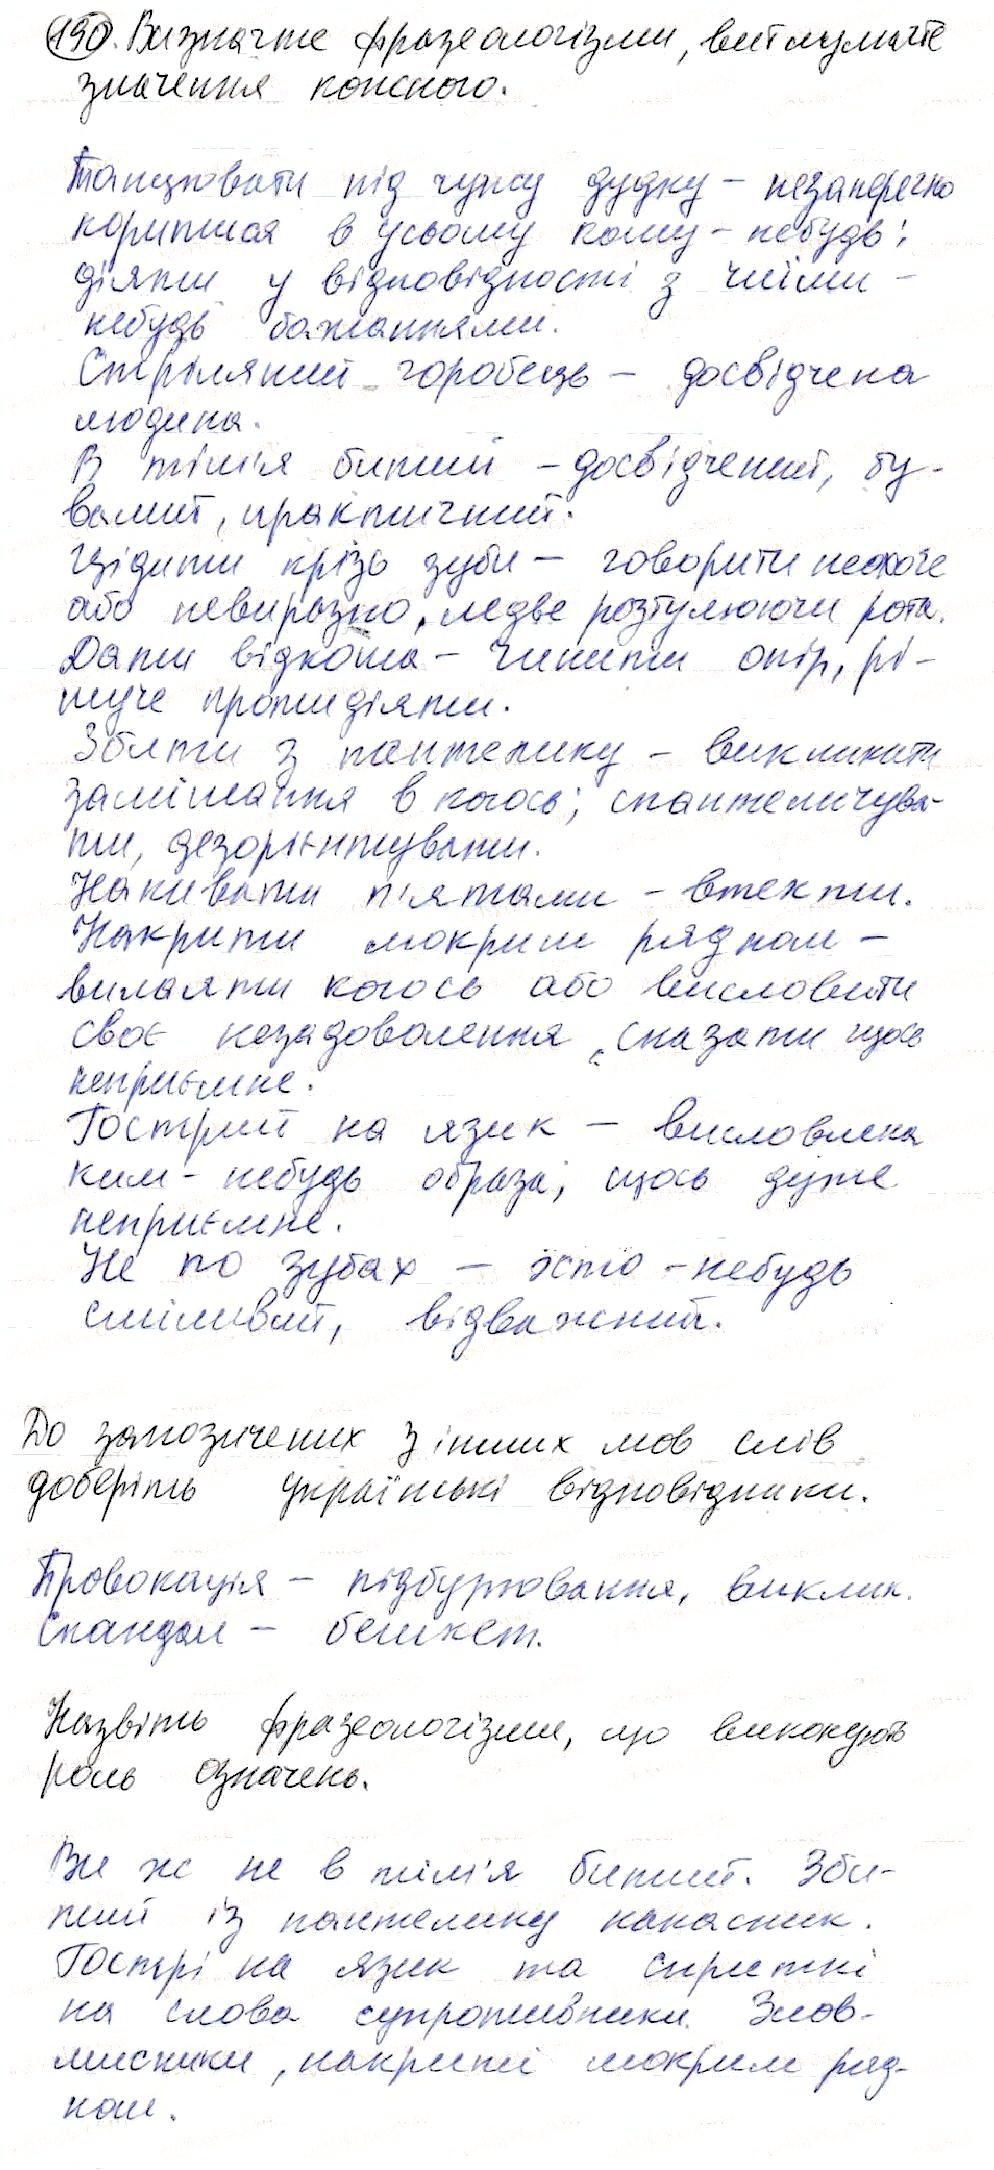 190. Визначте фразеологізми, витлумачте
значення кожного.
Танцювати під чужу дудку – незаперечно
коритися в усьому кому-небудь;
діяти у відповідності з чиїми-
небудь бажаннями.
Стріляний горобець – досвідчена
людина.
В тім'я битий – досвідчений, бу-
валий, практичний.
Цідити крізь зуби – говорити неохоче
або невиразно, ледве розтулюючи рота.
Дати відкоша – чинити опір, рі-
шуче протидіяти.
Збити з пантелику – викликати
замішання в когось; спантеличува-
ти, дезорієнтувати.
Накивати п'ятами – втекти.
Накрити мокрим рядном –
вилаяти когось або висловити
своє незадоволення, сказати щось
неприємне.
Гострий на язик – висловлена
ким-небудь образа, щось дуже
неприємне.
Не по зубах – хто-небудь
сміливий, відважний.
До запозичених з інших мов слів
доберіть українські відповідники.
Провокація – підбурювання, виклик.
Скандал – бешкет.
Назвіть фразеологізми, що виконують
роль означень.
Ви ж не в тім'я битий. Зби-
тий із пантелику накасник.
Гострі на язик та спритні
на слова супротивники. Злов-
мисники, накриті мокрим ряд-
ном.